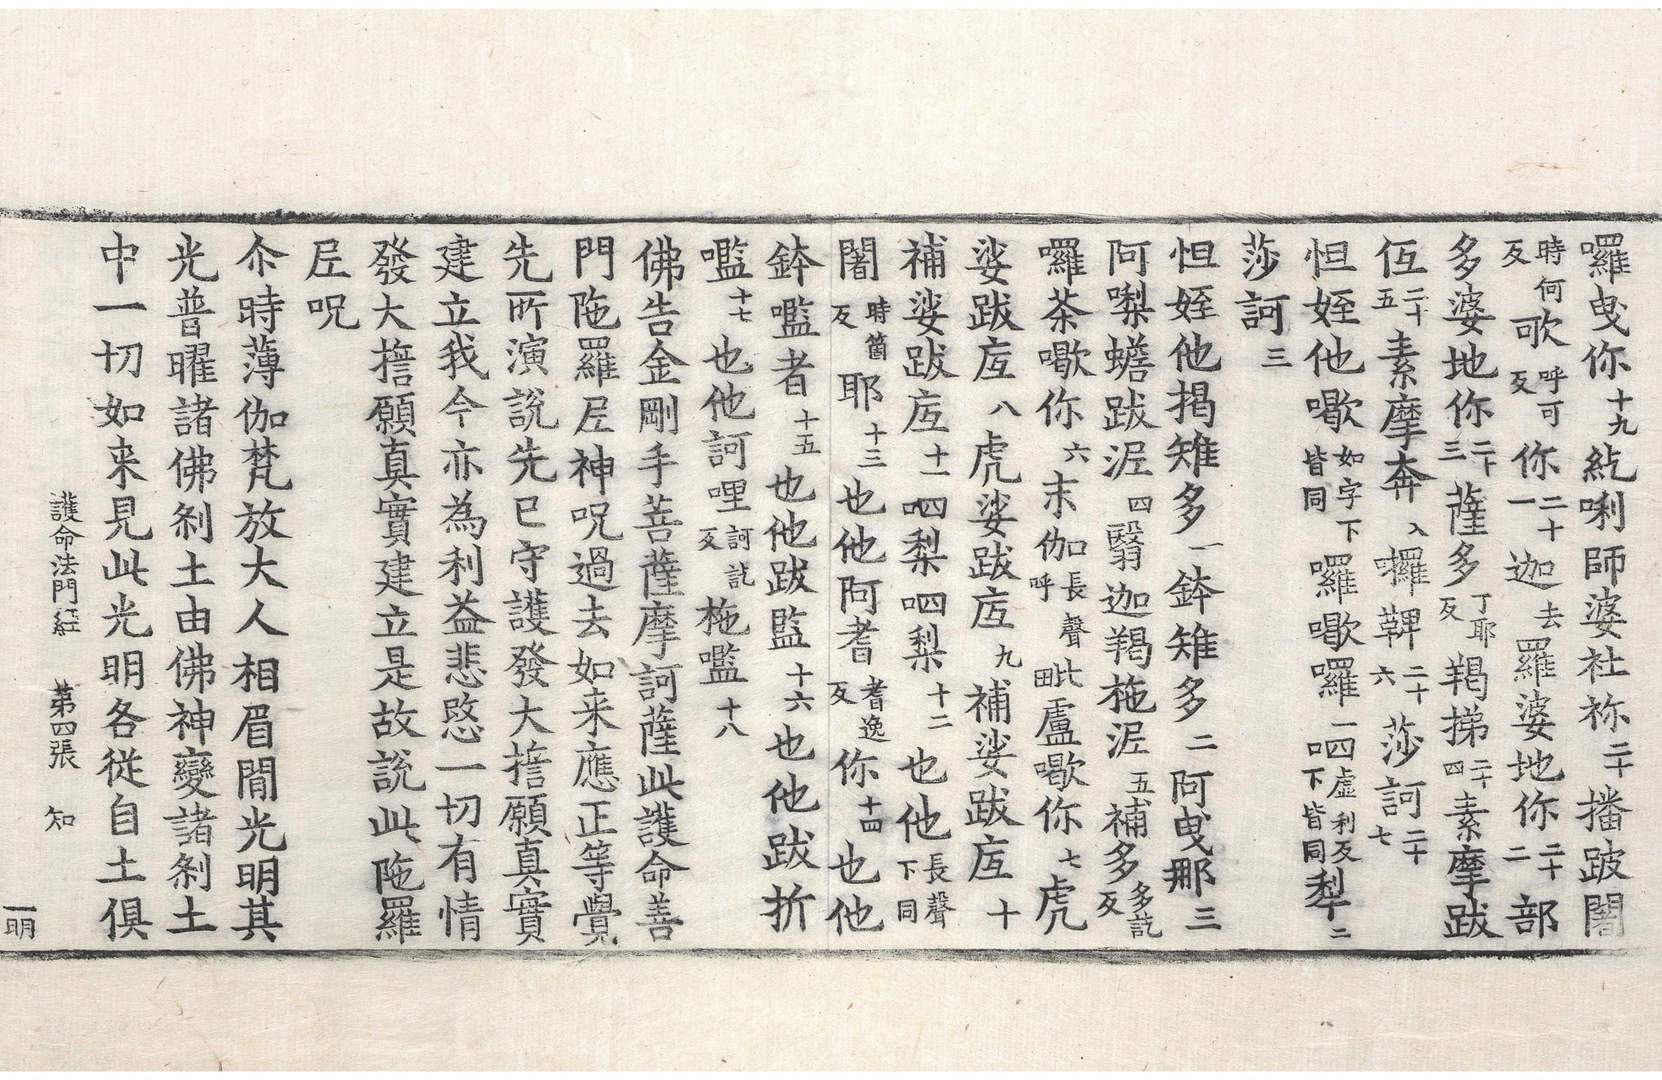 囉曳你十九紇唎師婆社祢二十播跛闍
時何反歌呼可反你二十一迦去羅婆地你二十二部
多婆地你二十三薩多丁耶反羯挮二十四素摩跋
仾二十五素摩奔入囉鞞二十六莎訶二十七
怛姪他㘑如字下皆同囉㘑囉一呬虛利反口下皆同犁二
莎訶三
怛姪他揭雉多一鉢雉多二阿曳那三
阿㗚蟾跋泥四翳迦羯柂泥五補多多訖反
囉茶㘑你六末伽長聲呼毗盧㘑你七虎
娑跋㡳八虎娑跋㡳九補娑跋㡳十
補娑跋㡳十一呬梨呬梨十二也他長聲下同
闍時箇反耶十三也他阿耆耆逸反你十四也他
鉢㘕者十五也他跋監十六也他跋折
㘕十七也他訶哩訶訖反柂㘕十八
佛告金剛手菩薩摩訶薩此護命善
門陁羅𡰱神呪過去如来應正等覺
先所演說先已守護發大擔願真實
建立我今亦為利益悲愍一切有情
發大擔願真實建立是故說此陁羅
𡰱呪
尒時薄伽梵放大人相眉間光明其
光普曜諸佛刹土由佛神變諸刹土
中一切如来見此光明各從自土俱
護命法門經 第四張 知
一明